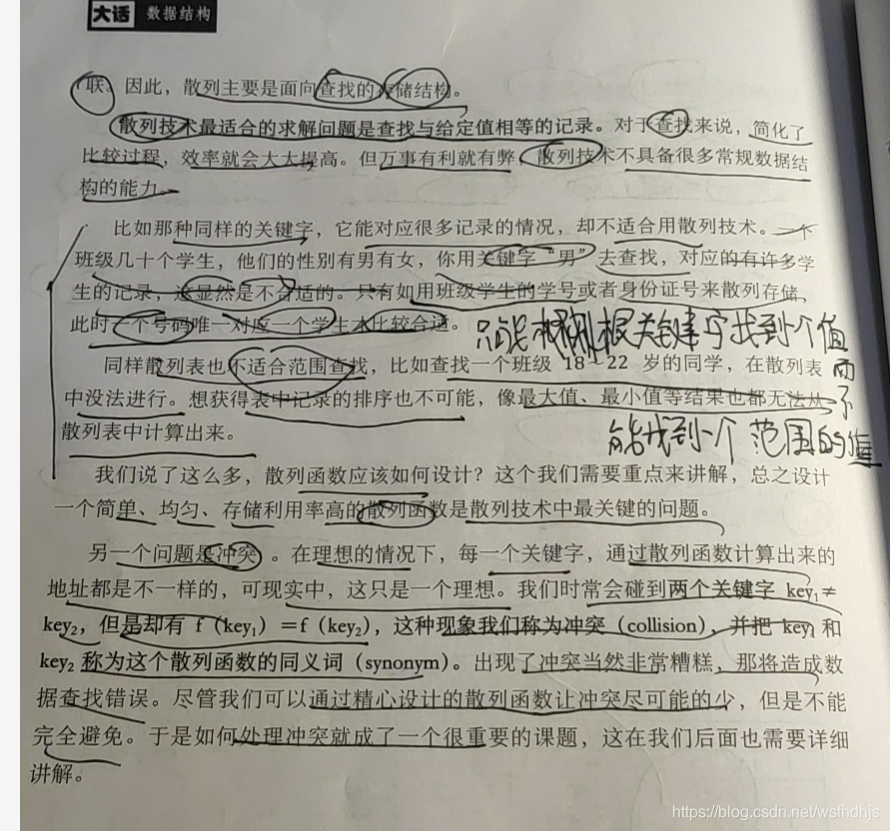 大话 数据结构
联。因此，散列主要是面向查找的存储结构。
散列技术最适合的求解问题是查找与给定值相等的记录。对于查找来说，简化了
比较过程，效率就会大大提高。但万事有利就有弊，散列技术不具备很多常规数据结
构的能力。
比如那种同样的关键字，它能对应很多记录的情况，却不适合用散列技术。一个
班级几十个学生，他们的性别有男有女，你用关键字“男”去查找，对应的有许多学
生的记录，这显然是不合适的。只有如用班级学生的学号或者身份证号来散列存储，
此时一个号码唯一对应一个学生才比较合适。
只能根据关键字找到个值
同样散列表也不适合范围查找，比如查找一个班级 18～22 岁的同学，在散列表
而
中没法进行。想获得表中记录的排序也不可能，像最大值、最小值等结果也都无法从
不
散列表中计算出来。
能找到一个 范围的值
我们说了这么多，散列函数应该如何设计？这个我们需要重点来讲解，总之设计
一个简单、均匀、存储利用率高的散列函数是散列技术中最关键的问题。
另一个问题是冲突。在理想的情况下，每一个关键字，通过散列函数计算出来的
地址都是不一样的，可现实中，这只是一个理想。我们时常会碰到两个关键字 key₁≠
key₂，但是却有 f（key₁）=f（key₂），这种现象我们称为冲突（collision），并把 key₁ 和
key₂ 称为这个散列函数的同义词（synonym）。出现了冲突当然非常糟糕，那将造成数
据查找错误。尽管我们可以通过精心设计的散列函数让冲突尽可能的少，但是不能
完全避免。于是如何处理冲突就成了一个很重要的课题，这在我们后面也需要详细
讲解。
https://blog.csdn.net/wsfhdhjs